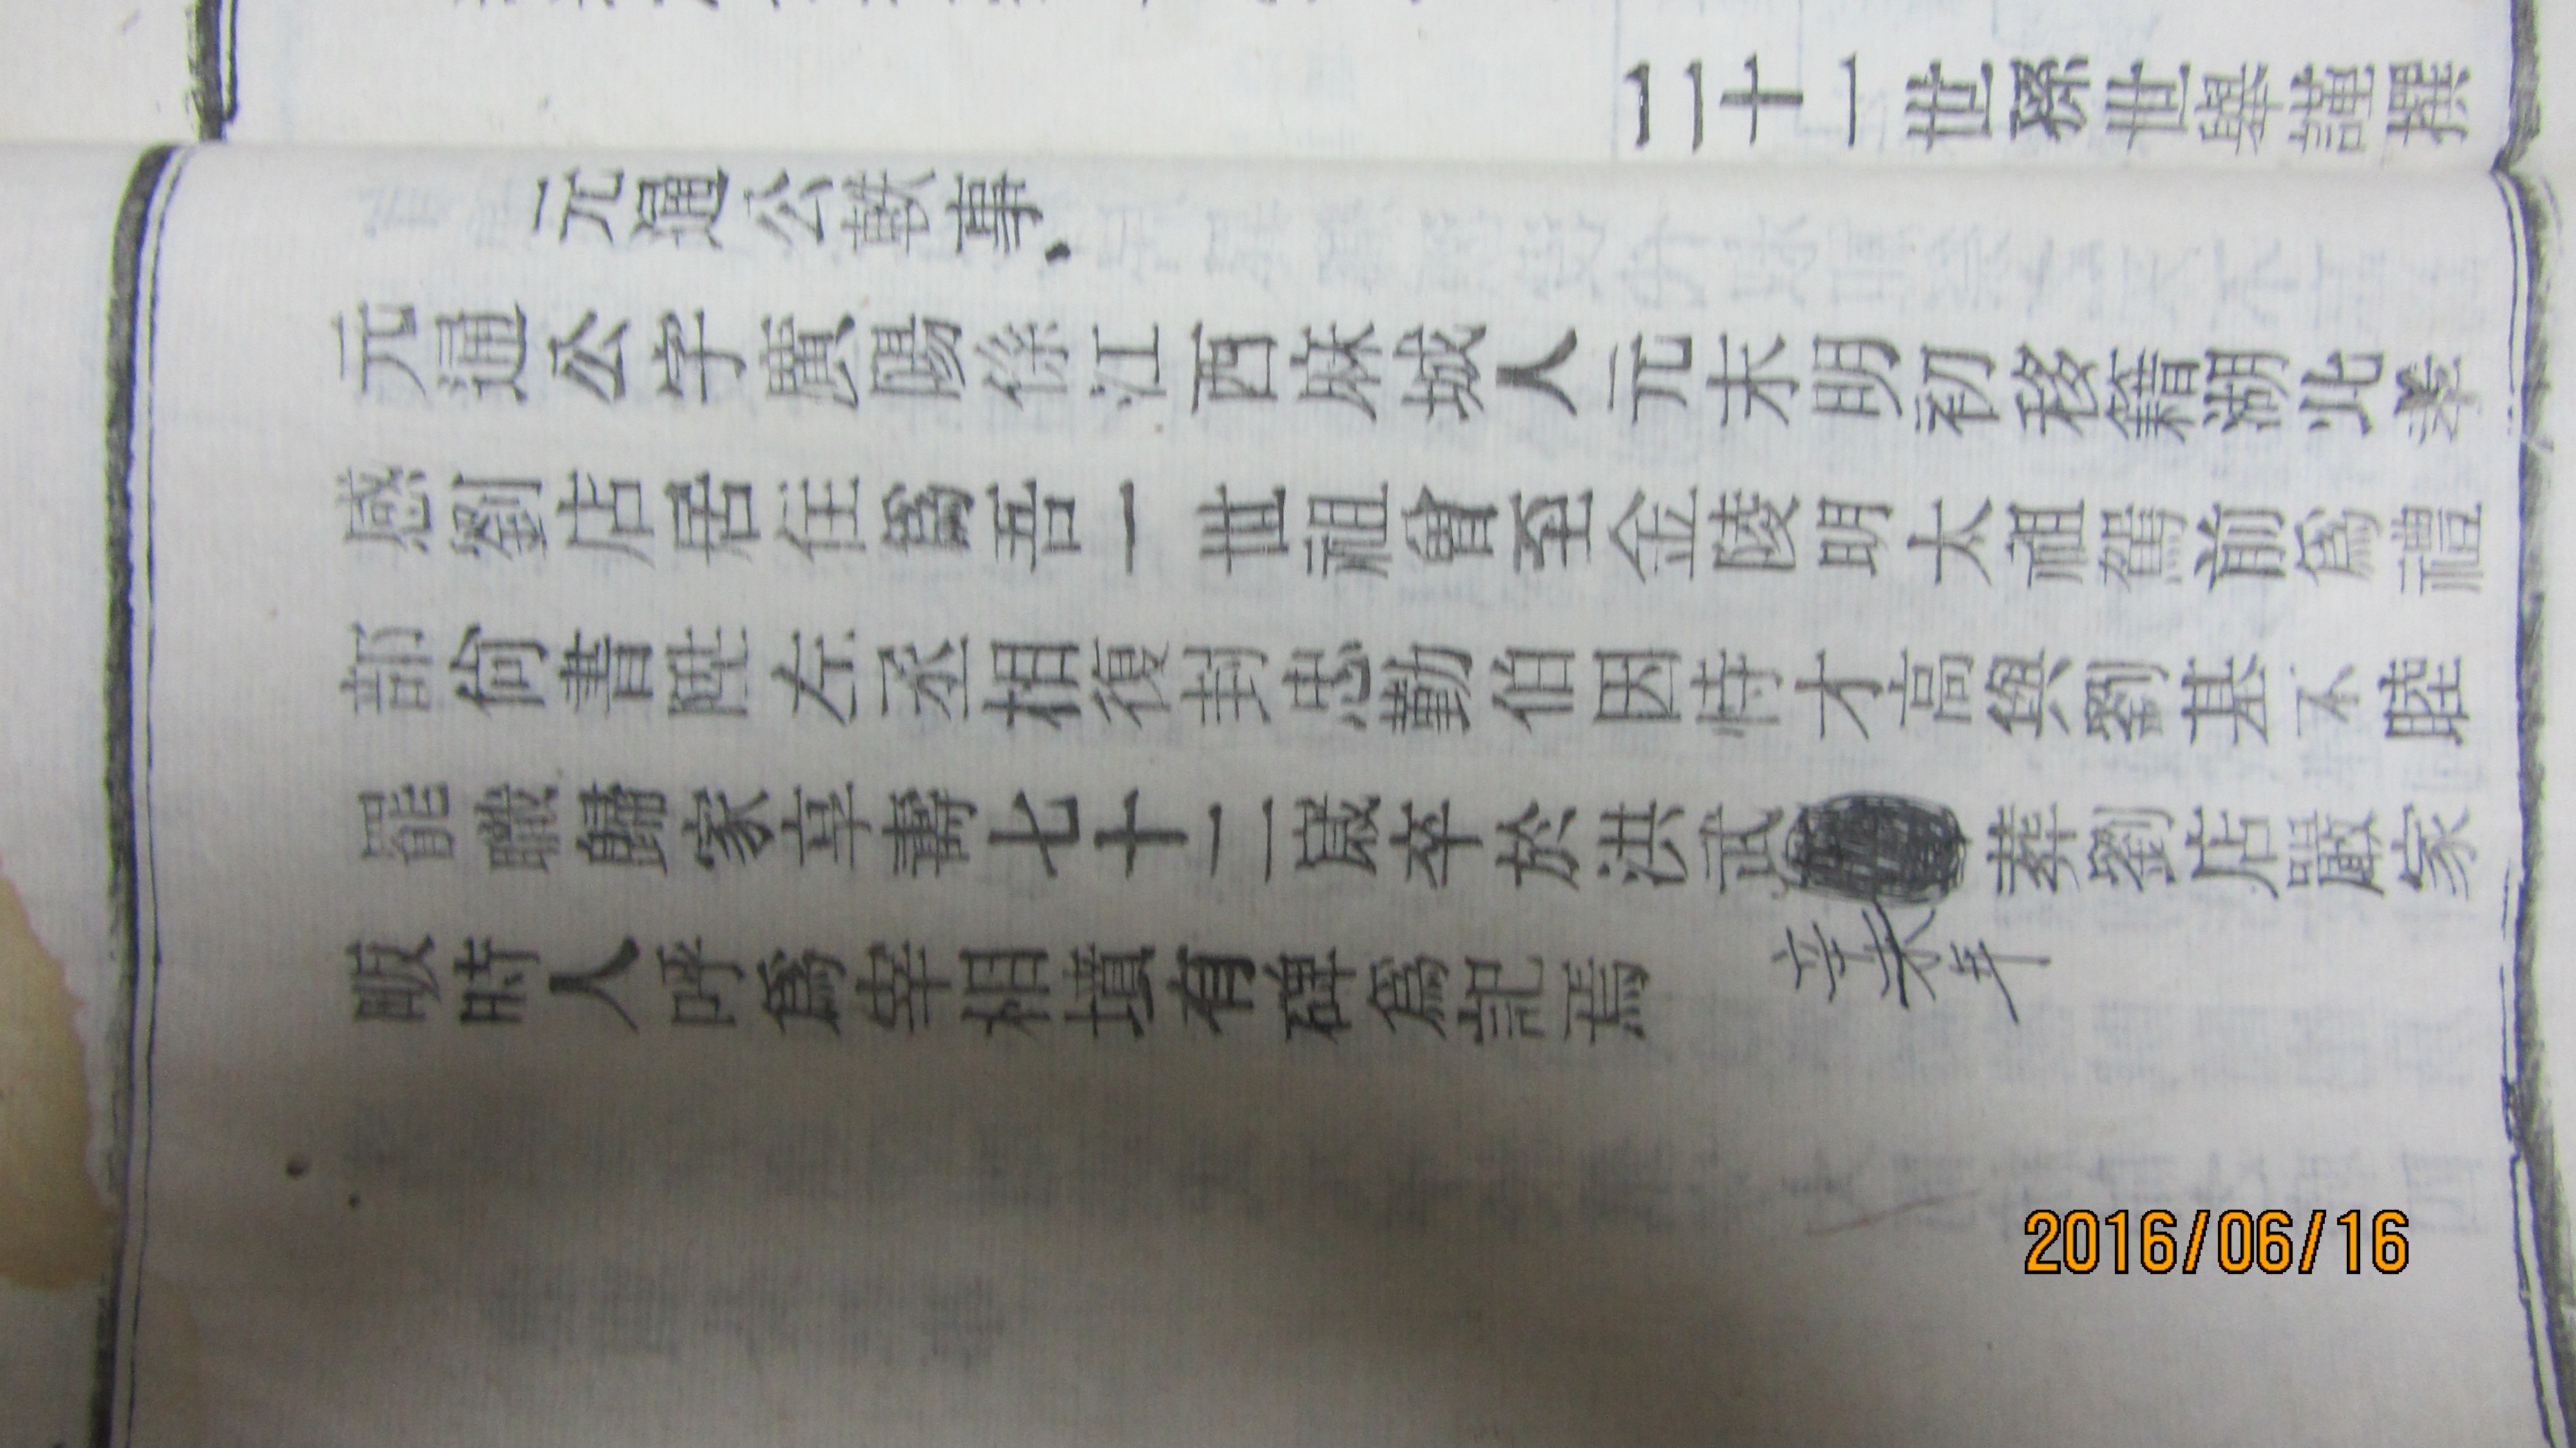 二十一世孫世舉謹撰
元通公載事
元通公字廣賜係江西麻城人元末明初移籍湖北孝
感劉店居住為吾一世祖曾至金陵明太祖駕前為禮
部尚書陞左丞相復封忠勤伯因恃才高與劉基不睦
罷職歸家享壽七十二歲卒於洪武辛未年葬劉店嚴家
畈時人呼為宰相墳有碑為記焉
2016/06/16